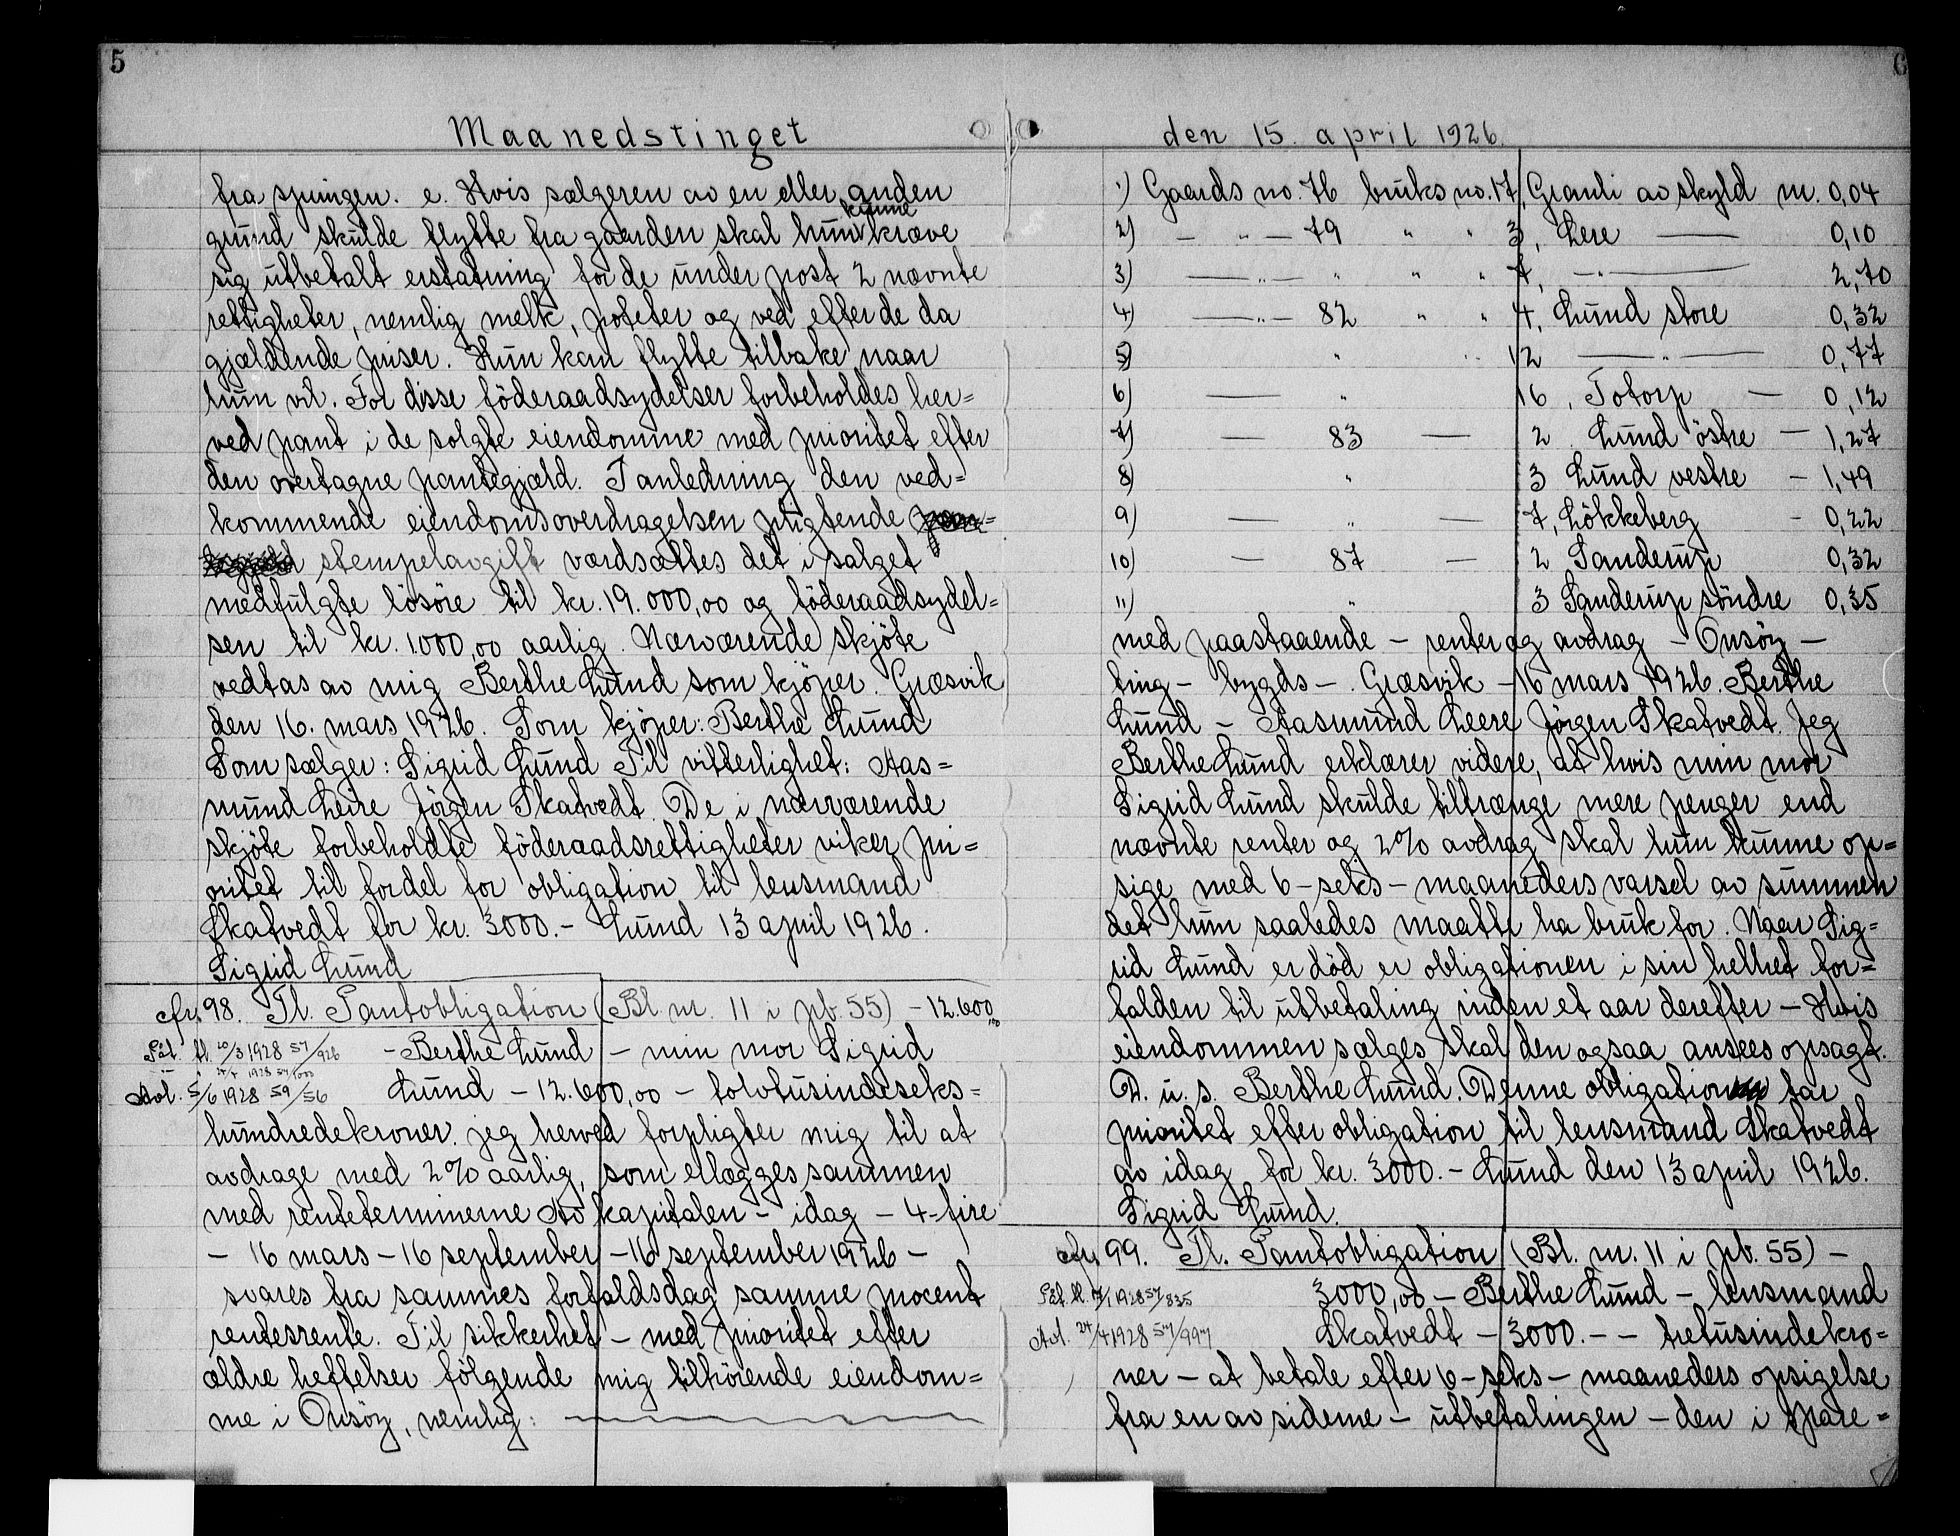 5
Maanedstinget
fra springen. e. Hvis sælgeren av en eller anden
grund skulde flytte fra gaarden skal hun kunne kræve
sig utbetalt erstatning for de under post 2 nævnte
rettigheter, nemlig melk, poteter og ved efter de da
gjældende priser. Hun kan flytte tilbake naar
hun vil. For disse föderaadsydelser forbeholdes her=
ved pant i de solgte eiendomme med prioritet efter
den overtagne pantegjæld. I anledning den ved=
kommende eiendomsoverdragelsen pligtende
stempelavgift værdsættes det i salget
medfulgte lösöre til kr. 19.000,00 og föderaadsydel=
sen til kr. 1000,00 aarlig. Nærværende skjöte
vedtas av mig Berthe Lund som kjöper. Græsvik
den 16. mars 1926. Som kjöper: Berthe Lund
Som sælger: Sigrid Lund Til vitterlighet: Aas=
mund Leire Jörgen Skatvedt. De i nærværende
skjöte forbeholdte föderaadsrettigheter viker pri=
oritet til fordel for obligation til lensmand
Skatvedt for kr. 3000.- Lund 13 april 1926.
Sigrid Lund
cfr. 98. Tl. Pantobligation (Bl nr. 11 i pb. 55) - 12.600,00
Påt. tl. 20/3 1928 57/926 - Berthe Lund - min mor Sigrid
Avl. 5/6 1928 59/56 Lund - 12.600,00 - tolvtusindeseks=
hundredekroner. jeg herved forpligter mig til at
avdrage med 2% aarlig, som erlægges sammen
med renteterminerne Av kapitalen - idag - 4-fire
- 16 mars - 16 september - 16 september 1926 -
svares fra sammes forfaldsdag samme procent
rentesrente. Til sikkerhet - med prioritet efter
ældre heftelser følgende mig tilhörende eiendom=
me i Onsöy, nemlig:
6
den 15. april 1926.
1) Gaards no. 76 bruks no. 17, Granli av skyld m. 0,04
2) - " - 79 " " 3, Lere - 0,10
3) - " - " " " 7, - " - 2,70
4) - " - 82 " " 4, Lund store 0,32
5) " " 12 - " - 0,77
6) - " 16, Totorp - 0,12
7) - 83 - 2 Lund östre - 1,27
8) " 3 Lund vestre - 1,49
9) - " - 7, Lökkeberg - 0,22
10) - 87 - 2 Sanderup 0,32
11) " 3 Sanderup söndre 0,35
med paastaaende - renter og avdrag - Onsöy -
ting - bygds -. Græsvik - 16 mars 1926. Berthe
Lund - Aasmund Leere Jörgen Skatvedt. Jeg
Berthe Lund erklærer videre, at hvis min mor
Sigrid Lund skulde tiltrænge mere penger end
nævnte renter og 2% avdrag skal hun kunne op=
sige med 6-seks-maaneders varsel av summen
det hun saaledes maatte ha bruk for. Naar Sig=
rid Lund er död er obligationen i sin helhet for=
falden til utbetaling inden et aar derefter - Hvis
eiendommen sælges skal den ogsaa ansees opsagt.
D. u. s. Berthe Lund. Denne obligation tar
prioritet efter obligation til lensmand Skatvedt
av idag for kr. 3000.- Lund den 13 april 1926.
Sigrid Lund.
cfr. 99. Tl. Pantobligation (Bl. nr. 11 i pb. 55) -
1928 57/835 3000,00 - Berthe Lund - lensmand
Avl. 24/4 1928 57/997 Skatvedt - 3000.- - tretusindekro=
ner - at betale efter 6-seks-maaneders opsigelse
fra en av siderne - utbetalingen - den i spare=